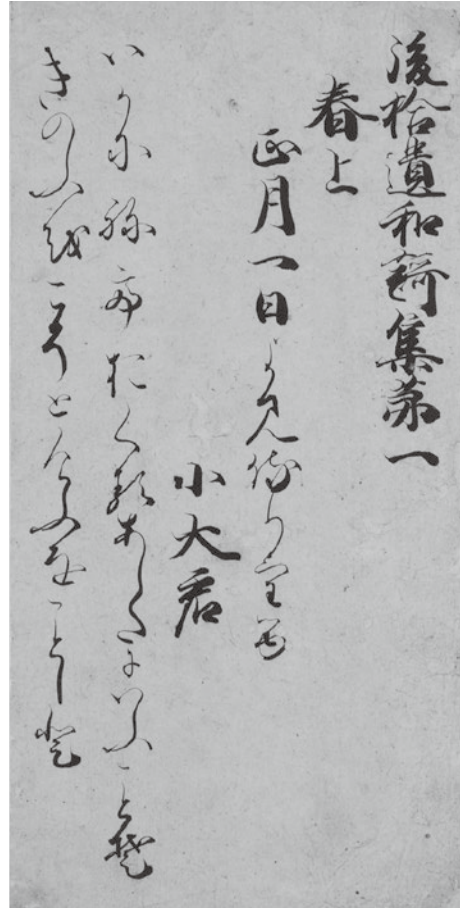 後拾遺和謌集第一
春上
正月一日よみ侍りける
小大君
いかにねておくるあしたにいふことそ
きのふをこそとけふをことしと